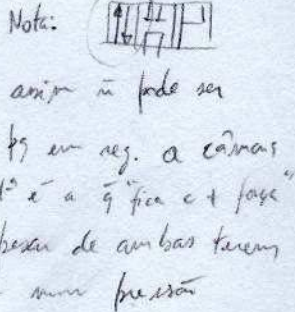 Nota:
assim ñ pode ser
pq em reg. a câmara
é a q "fica c + força"
de ambas terem
pressão